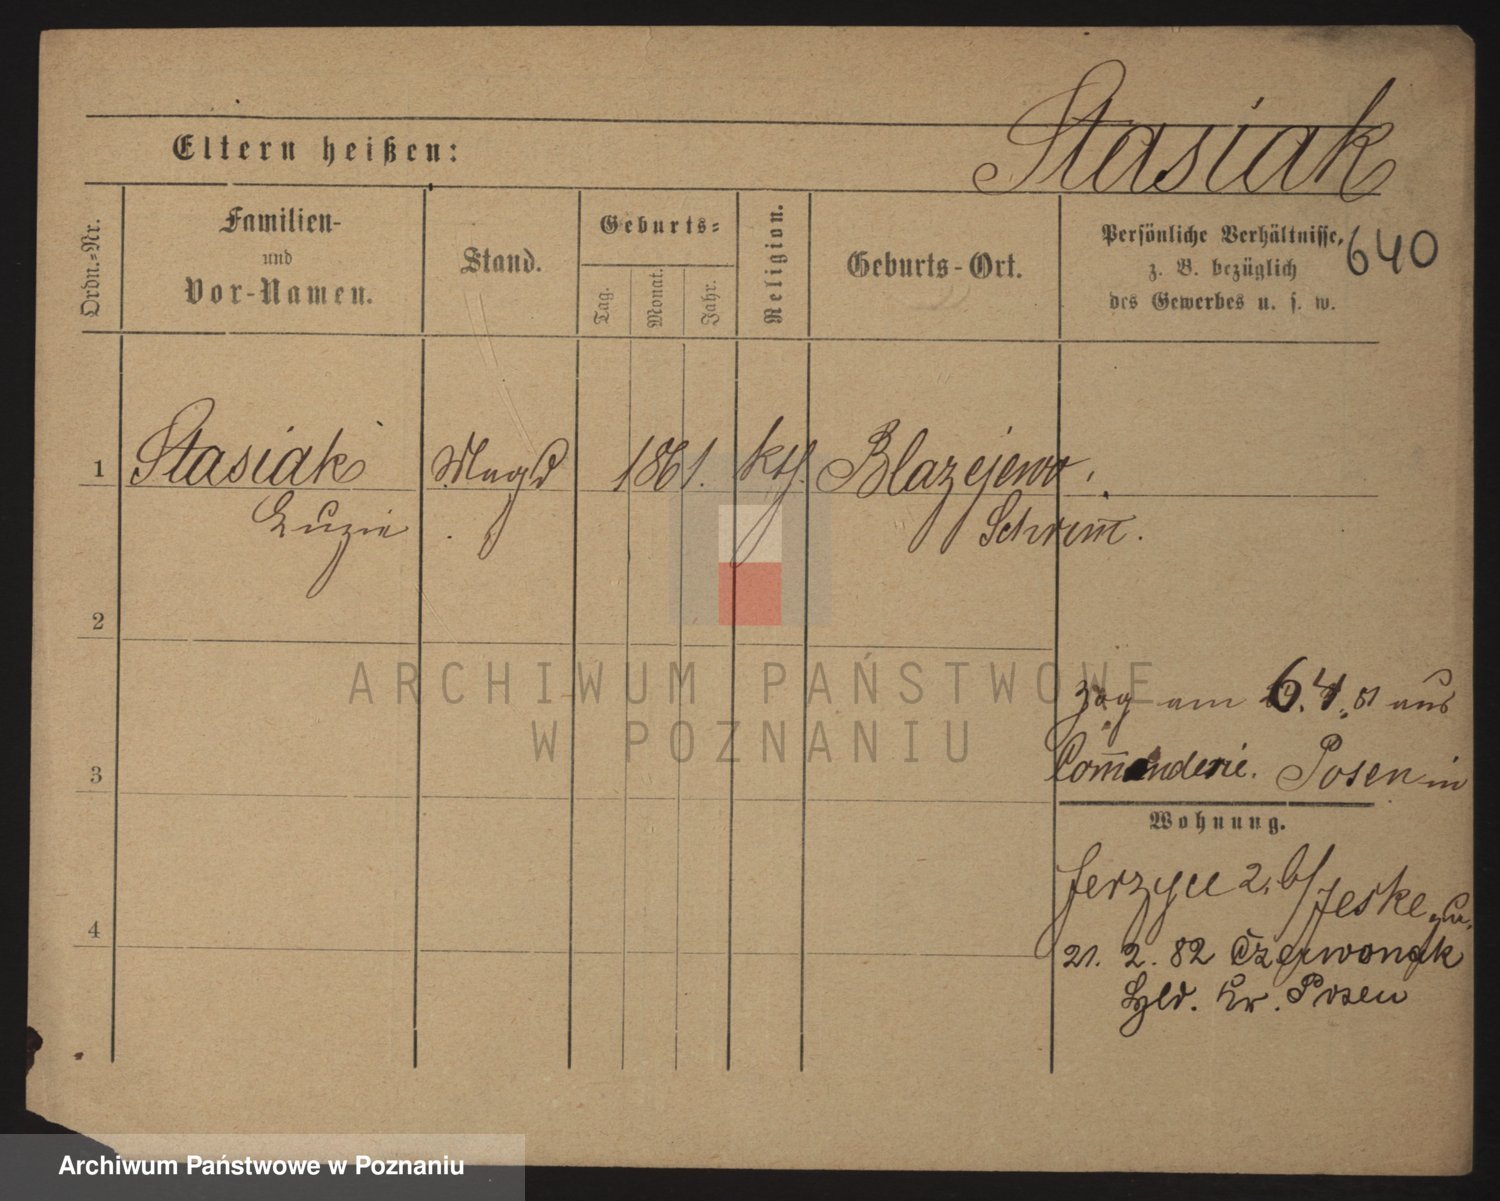 Stasiak
Eltern heißen:
Ordn.-Nr.
Familien-
und
Vor-Namen.
Stand.
Geburts-
Tag.
Monat.
Jahr.
Religion.
Geburts-Ort.
Persönliche Verhältnisse,
z. B. bezüglich
des Gewerbes u. s. w.
640
1
Stasiak
Luzie
Magd
1861.
kth.
Blazejewo,
Schrim̅.
2
3
4
zog am 6.4. 81 aus
Com̅anderie. Posen in
Wohnung.
Jerzyce 2. b/ Jeske
21. 2. 82 Czerwonak
Hld. Kr. Posen
ARCHIWUM PAŃSTWOWE
W POZNANIU
Archiwum Państwowe w Poznaniu